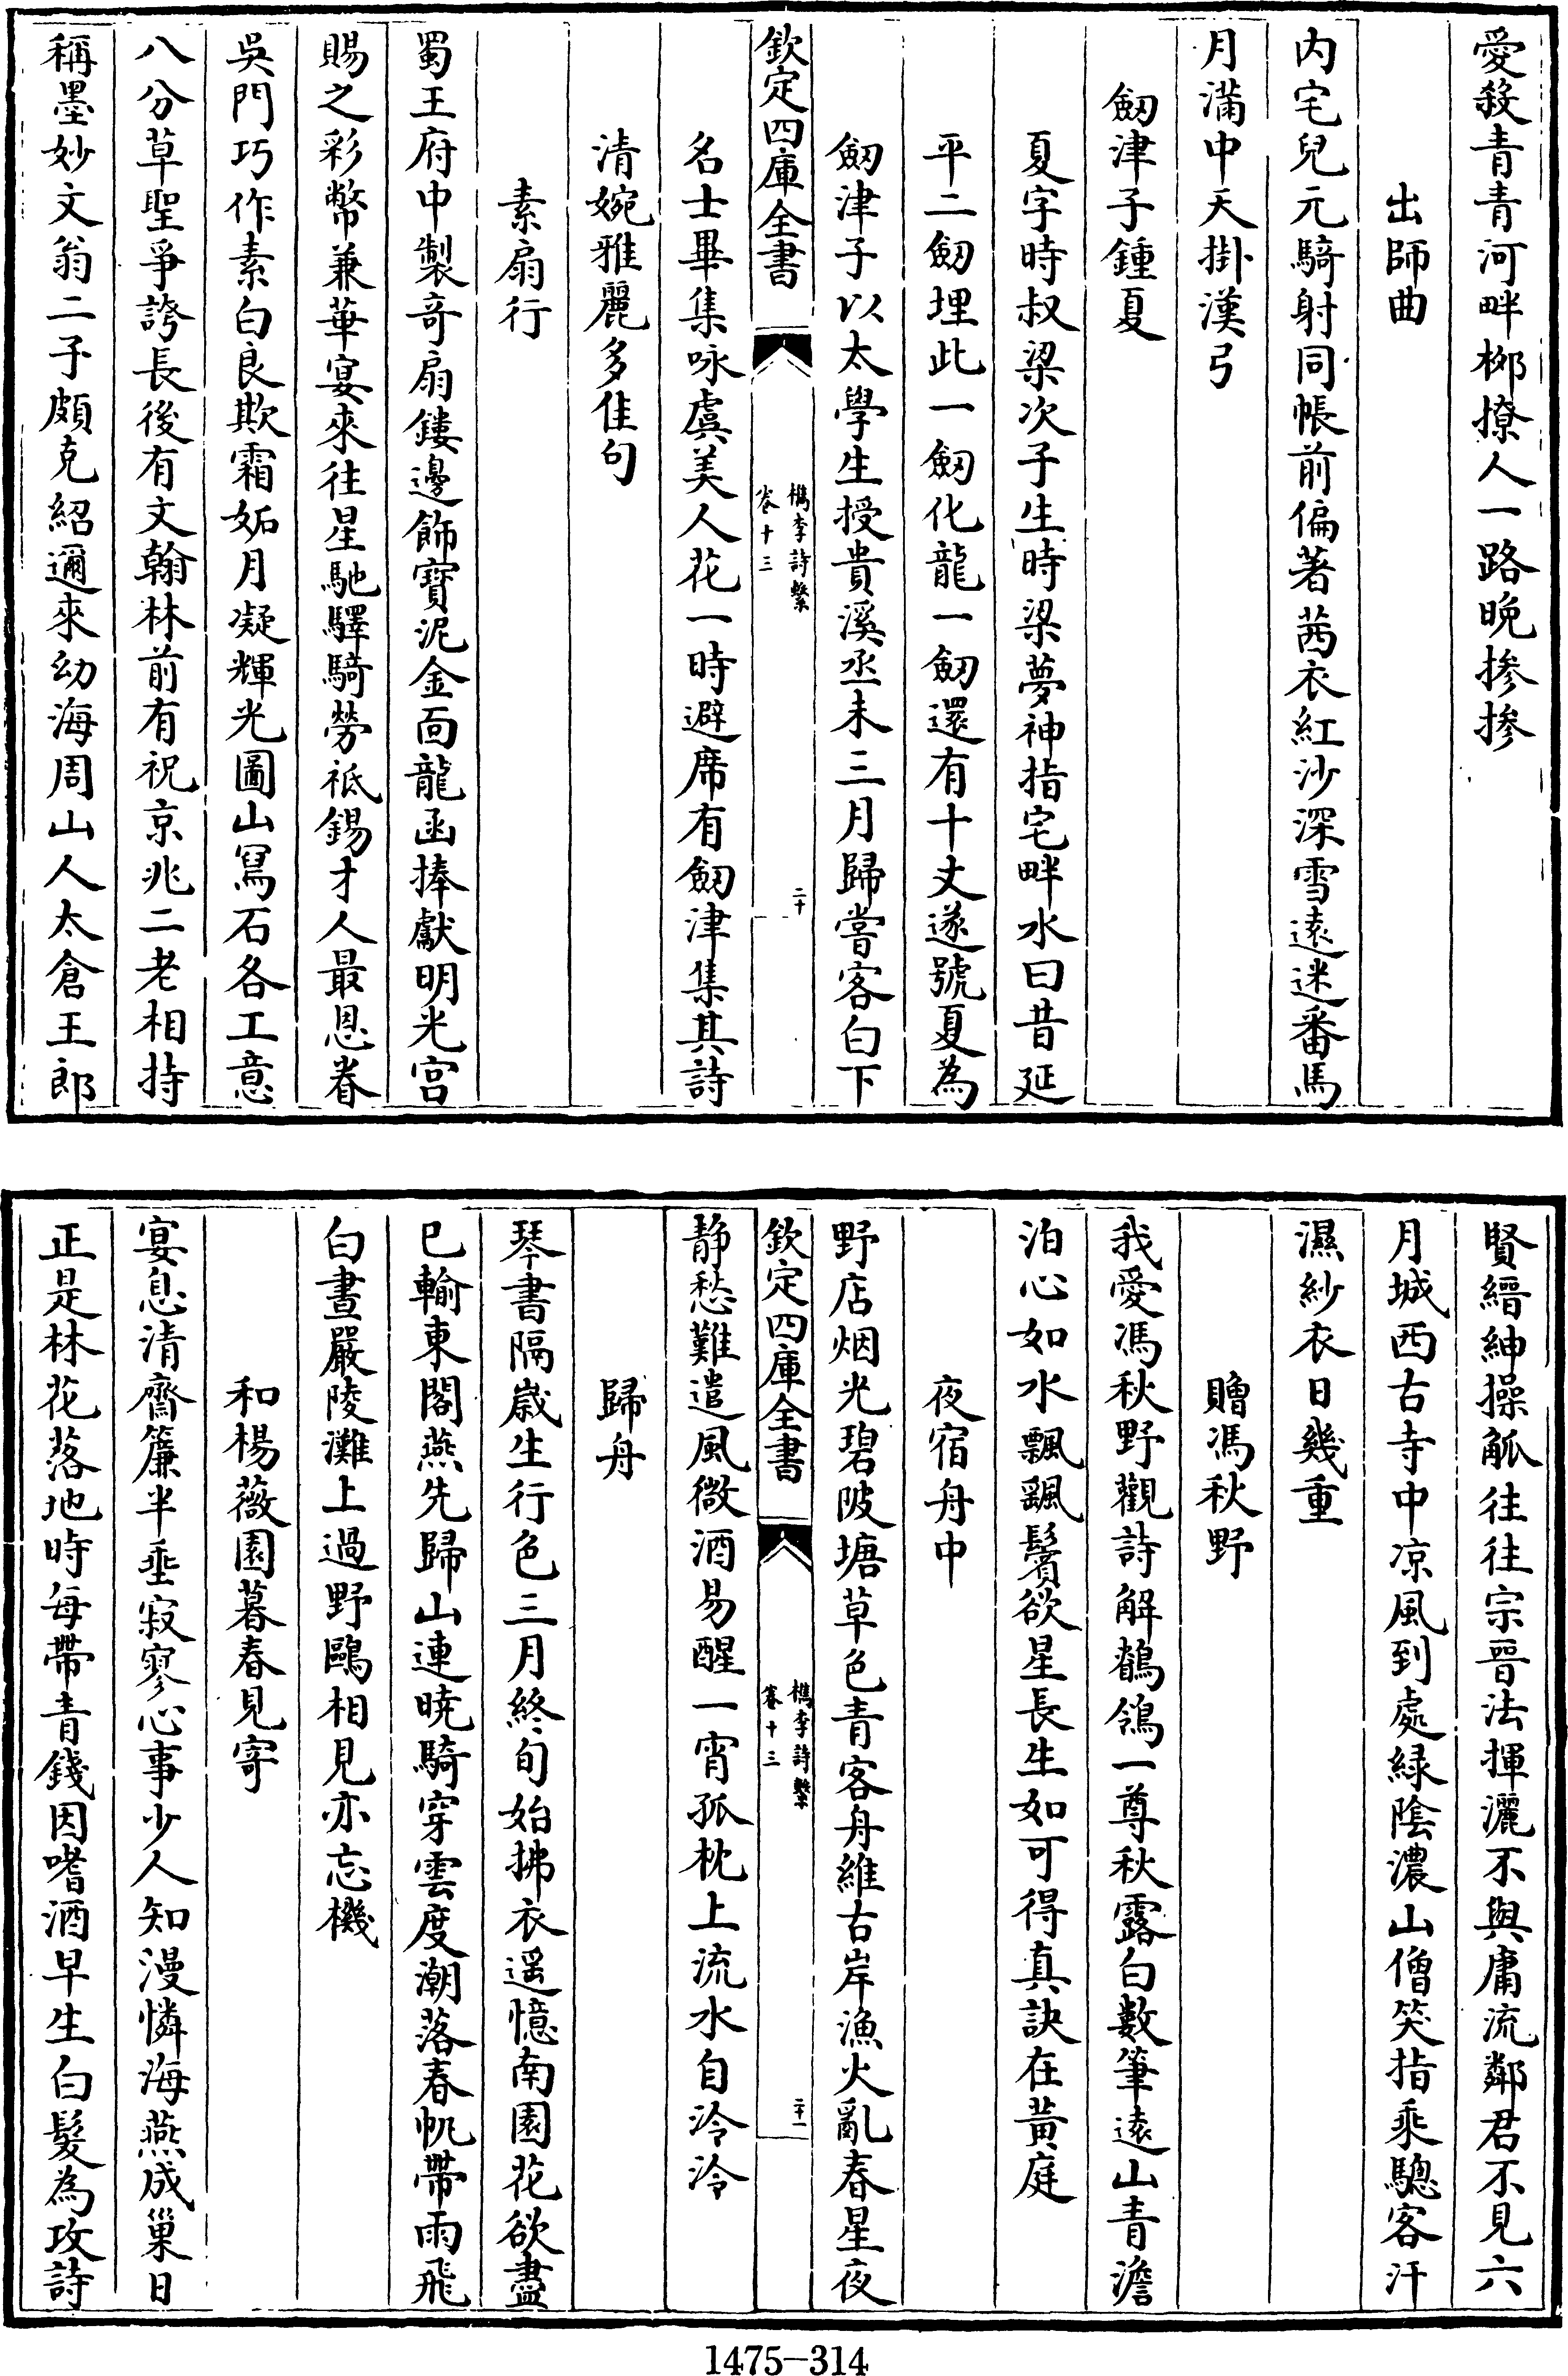 愛殺青青河畔柳撩人一路晚摻摻
出師曲
内宅兒元騎射同帳前偏著茜衣紅沙深雪遠迷番馬
月滿中天掛漢弓
劒津子鍾夏
夏字時叔梁次子生時梁夢神指宅畔水曰昔延
平二劒埋此一劒化龍一劒還有十丈遂號夏為
劒津子以太學生授貴溪丞未三月歸嘗客白下
欽定四庫全書
檇李詩繫
卷十三
二十
名士畢集咏虞美人花一時避席有劒津集其詩
清婉雅麗多佳句
素扇行
蜀王府中製竒扇鏤邊飾寶泥金面龍函捧獻明光宮
賜之彩幣兼華宴來往星馳驛騎勞祗錫才人最恩眷
吳門巧作素白良欺霜妬月凝輝光圖山冩石各工意
八分草聖爭誇長後有文翰林前有祝京兆二老相持
稱墨妙文翁二子頗克紹邇來幼海周山人太倉王郎
賢縉紳操觚往往宗晉法揮灑不與庸流鄰君不見六
月城西古寺中凉風到處緑陰濃山僧笑指乘驄客汗
濕紗衣日幾重
贈馮秋野
我愛馮秋野觀詩解鶺鴒一尊秋露白數筆遠山青澹
泊心如水飄颻鬢欲星長生如可得真訣在黄庭
夜宿舟中
野店烟光碧陂塘草色青客舟維古岸漁火亂春星夜
欽定四庫全書
檇李詩繫
卷十三
二十一
静愁難遣風微酒易醒一宵孤枕上流水自泠泠
歸舟
琴書隔嵗生行色三月終旬始拂衣遥憶南園花欲盡
巳輸東閣燕先歸山連曉騎穿雲度潮落春帆帶雨飛
白晝嚴陵灘上過野鷗相見亦忘機
和楊薇園暮春見寄
宴息清齋簾半垂寂寥心事少人知漫憐海燕成巢日
正是林花落地時每帶青錢因嗜酒早生白髮為攻詩
1475-314